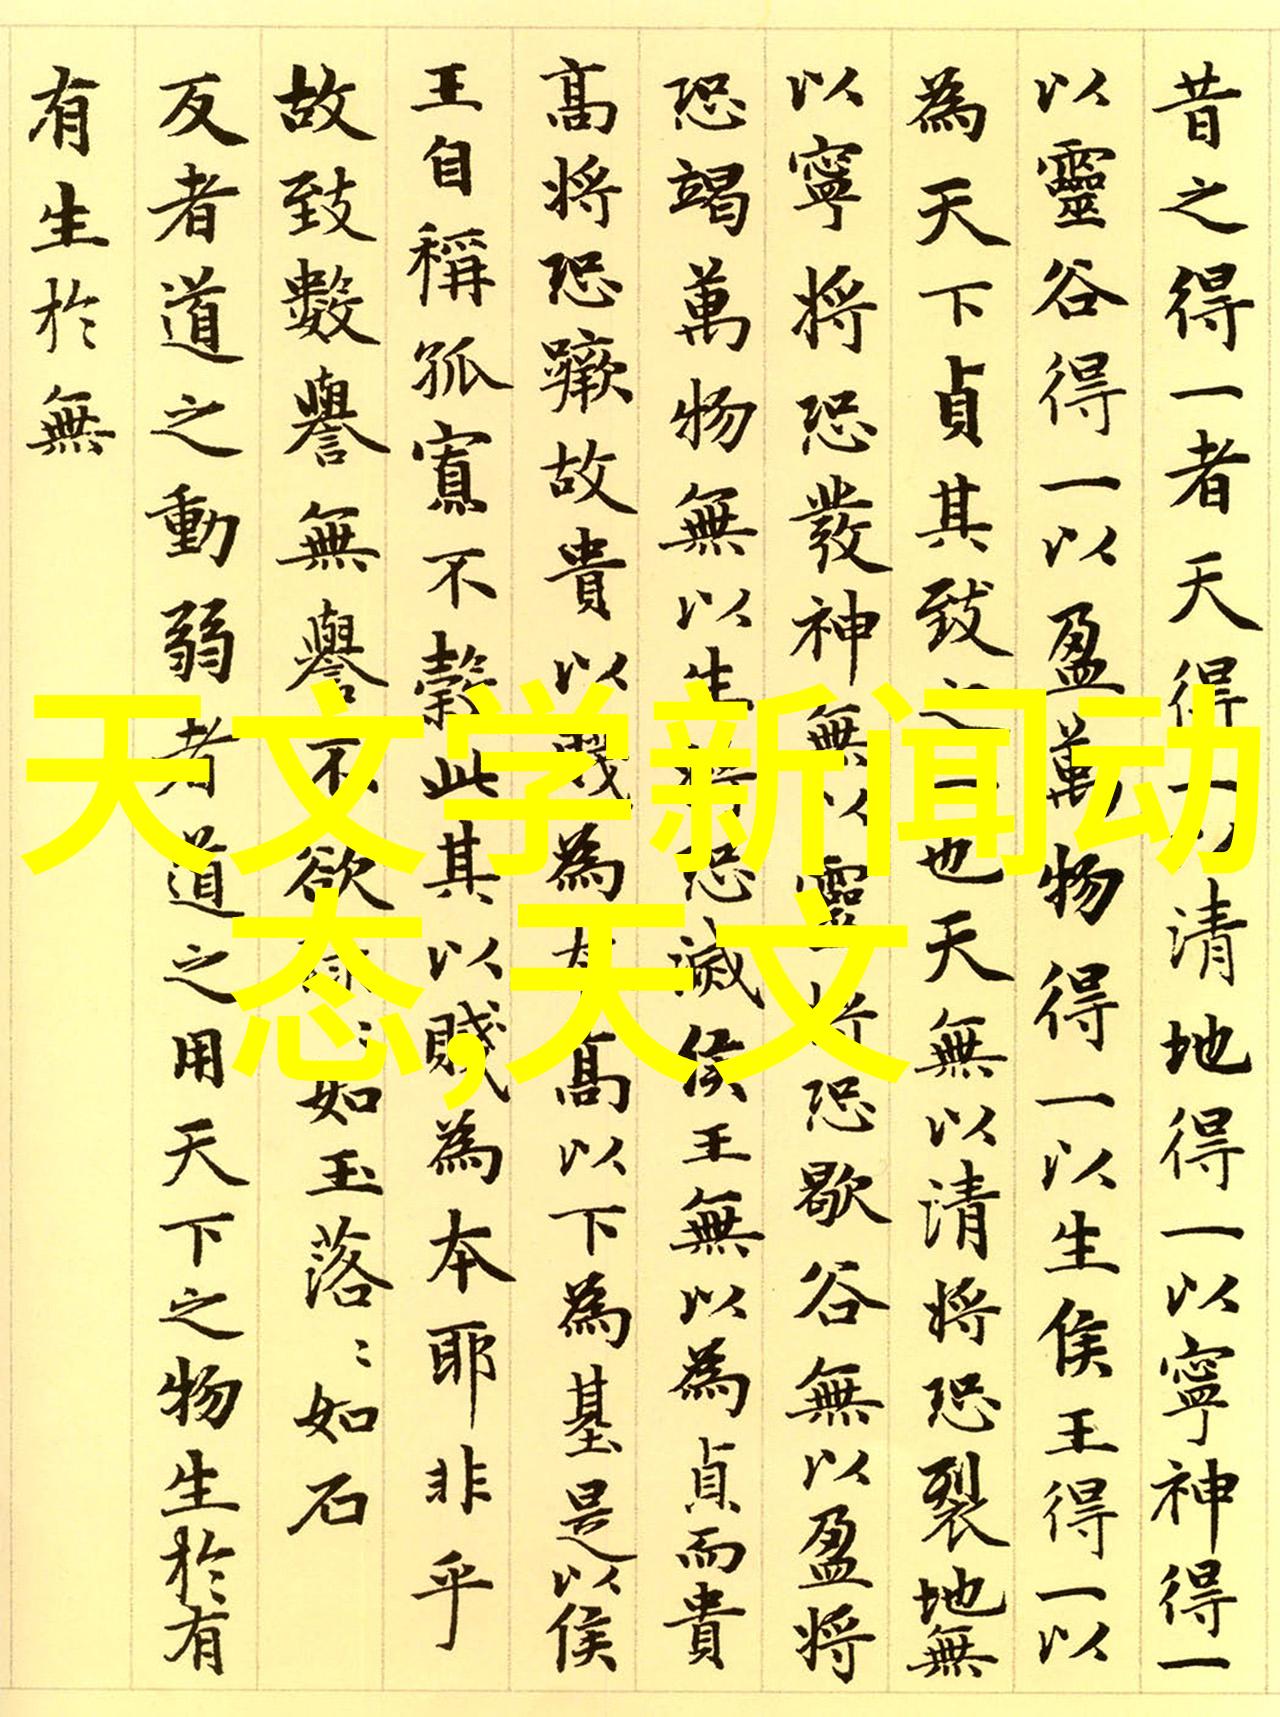 昔之得一者天得一以清地得一以寧神得一
以靈谷得一以盈萬物得一以生侯王得一以
為天下貞其致之一也天無以清將恐裂地無
以寧將恐發神無以靈將恐歇谷無以盈將
恐竭萬物無以生將恐滅侯王無以為貞而貴
高將恐蹶故貴以賤為本高以下為基是以侯
王自稱孤寡不穀此其以賤為本耶非乎
故致數譽無譽不欲琭〻如玉落〻如石
反者道之動弱者道之用天下之物生於有
有生於無
天文学新闻动
态,天文